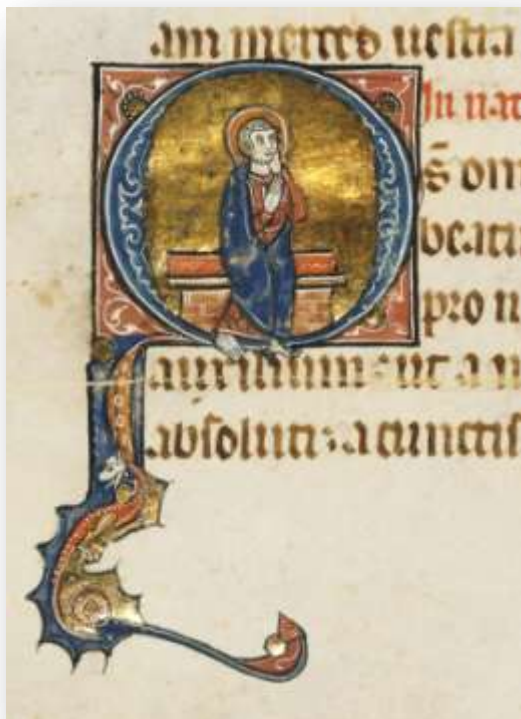 am merces uestra
In nat
s̄ om
beati
pro n
auxilium: ut a n
absoluti: a cunctis